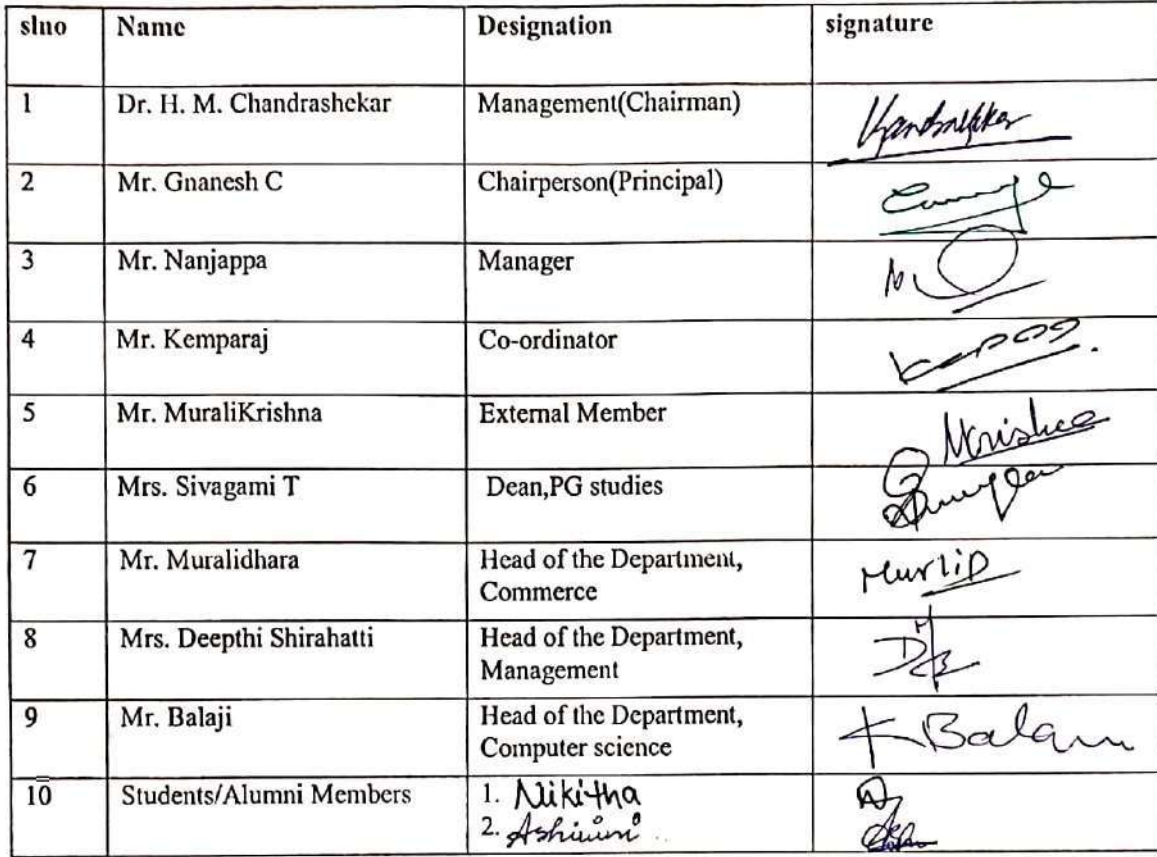 slno Name Designation signature
1 Dr. H. M. Chandrashekar Management(Chairman)
2 Mr. Gnanesh C Chairperson(Principal)
3 Mr. Nanjappa Manager
4 Mr. Kemparaj Co-ordinator
5 Mr. MuraliKrishna External Member
6 Mrs. Sivagami T Dean,PG studies
7 Mr. Muralidhara Head of the Department, MurliD
Commerce
8 Mrs. Deepthi Shirahatti Head of the Department,
Management
9 Mr. Balaji Head of the Department,
Computer science
10 Students/Alumni Members 1. Nikitha
2. Ashwini